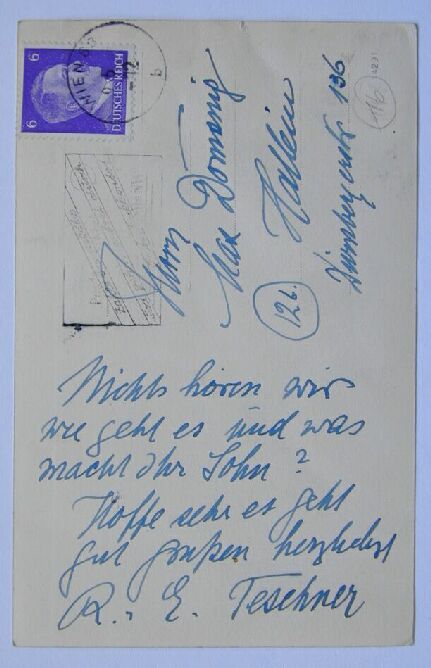 6 6
DEUTSCHES REICH
WIEN
b
Herrn
Max Domanig
Hallein
136
12b.
116
4291
Nichts hören wir
wie geht es und was
macht Ihr Sohn?
Hoffe sehr es geht
gut grüßen herzlichst
R. u. E. Teschner